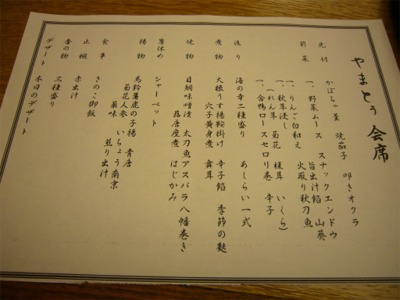 やまとぅ会席
先付 かぼちゃ羹 焼茄子 叩きオクラ
スナックエンドウ 山葵
旨出汁餡
前菜 一、野菜ムース 火取り秋刀魚
一、りんご白和え
一、秋草浸し
(れん草 菊花 椎茸 いくら)
一、合鴨ロースセロリ巻 辛子
造り 海の幸二種盛り あしらい一式
煮物 大根うす揚鞍掛け 辛子餡 季節の麩
穴子黄身煮 舞茸
焼物 目鯛味噌漬 太刀魚アスパラ八幡巻き
蓮唐座煮 はじかみ
箸休め シャーベット
揚物 馬鈴薯虎の子揚 青唐
菊花人参 いちょう南京
薬味 煎り出汁
食事 きのこ御飯
止椀 赤出汁
香の物 三種盛り
デザート 本日のデザート